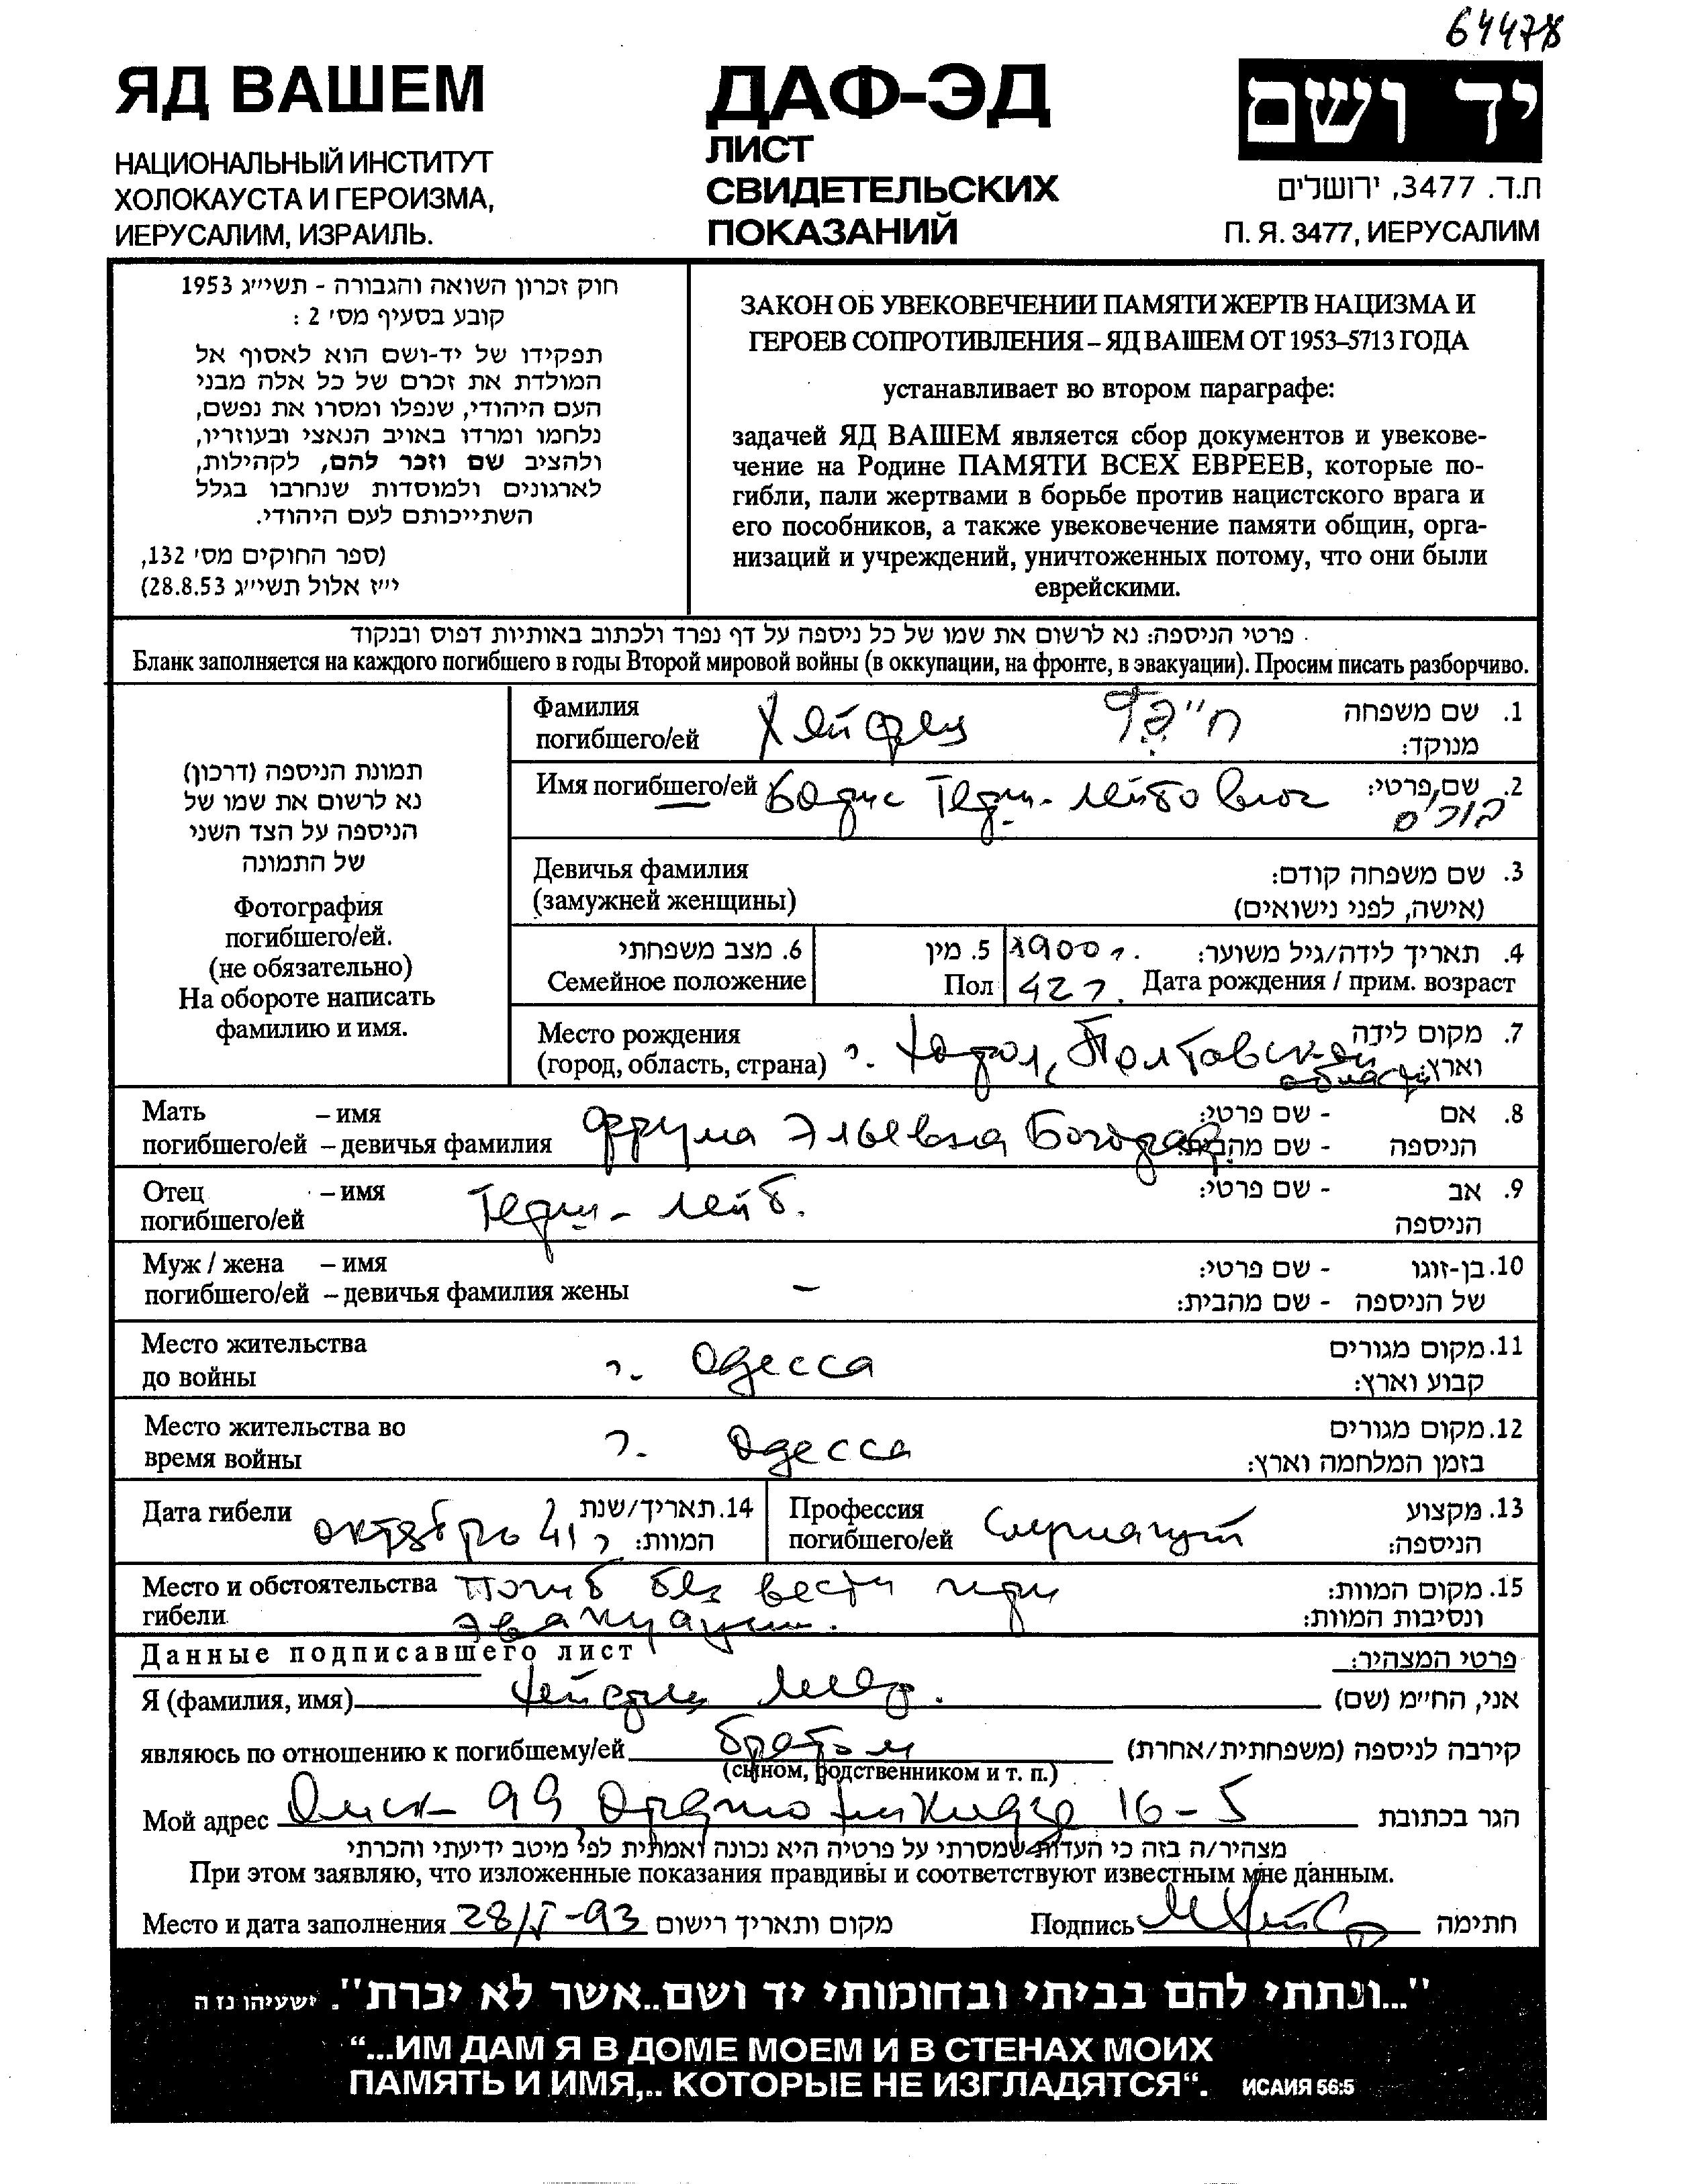 64478
ЯД ВАШЕМ
НАЦИОНАЛЬНЫЙ ИНСТИТУТ
ХОЛОКАУСТА И ГЕРОИЗМА,
ИЕРУСАЛИМ, ИЗРАИЛЬ.
ДАФ-ЭД
ЛИСТ
СВИДЕТЕЛЬСКИХ
ПОКАЗАНИЙ
יד ושם
ת.ד. 3477, ירושלים
П. Я. 3477, ИЕРУСАЛИМ
חוק זכרון השואה והגבורה - תשי״ג 1953
קובע בסעיף מס׳ 2 :
תפקידו של יד-ושם הוא לאסוף אל
המולדת את זכרם של כל אלה מבני
העם היהודי, שנפלו ומסרו את נפשם,
נלחמו ומרדו באויב הנאצי ובעוזריו,
ולהציב שם וזכר להם, לקהילות,
לארגונים ולמוסדות שנחרבו בגלל
השתייכותם לעם היהודי.
(ספר החוקים מס׳ 132,
י״ז אלול תשי״ג 28.8.53)
ЗАКОН ОБ УВЕКОВЕЧЕНИИ ПАМЯТИ ЖЕРТВ НАЦИЗМА И
ГЕРОЕВ СОПРОТИВЛЕНИЯ – ЯД ВАШЕМ ОТ 1953–5713 ГОДА
устанавливает во втором параграфе:
задачей ЯД ВАШЕМ является сбор документов и увекове-
чение на Родине ПАМЯТИ ВСЕХ ЕВРЕЕВ, которые по-
гибли, пали жертвами в борьбе против нацистского врага и
его пособников, а также увековечение памяти общин, орга-
низаций и учреждений, уничтоженных потому, что они были
еврейскими.
פרטי הניספה: נא לרשום את שמו של כל ניספה על דף נפרד ולכתוב באותיות דפוס ובנקוד .
Бланк заполняется на каждого погибшего в годы Второй мировой войны (в оккупации, на фронте, в эвакуации). Просим писать разборчиво.
תמונת הניספה (דרכון)
נא לרשום את שמו של
הניספה על הצד השני
של התמונה
Фотография
погибшего/ей.
(не обязательно)
На обороте написать
фамилию и имя.
Фамилия
погибшего/ей
Хейфец
1. שם משפחה
מנוקד:
Имя погибшего/ей Борис Герш-Лейбович
2. שם פרטי:
בוריס
Девичья фамилия
(замужней женщины)
3. שם משפחה קודם:
(אישה, לפני נישואים)
6. מצב משפחתי
Семейное положение
5. מין
Пол
1900 г.
42 г.
4. תאריך לידה/גיל משוער:
Дата рождения / прим. возраст
Место рождения
(город, область, страна)
г. Хорол, Полтавской
области
7. מקום לידה
וארץ:
Мать – имя
погибшего/ей – девичья фамилия
Фрума Эльевна Богорад
8. אם - שם פרטי:
הניספה - שם מהבית:
Отец – имя
погибшего/ей
Герш-Лейб.
9. אב - שם פרטי:
הניספה
Муж / жена – имя
погибшего/ей – девичья фамилия жены
–
10. בן-זוגו - שם פרטי:
של הניספה - שם מהבית:
Место жительства
до войны
г. Одесса
11. מקום מגורים
קבוע וארץ:
Место жительства во
время войны
г. Одесса
12. מקום מגורים
בזמן המלחמה וארץ:
Дата гибели октябрь 41 г
14. תאריך/שנת
המוות:
Профессия
погибшего/ей
13. מקצוע
הניספה:
Место и обстоятельства
гибели
Погиб без вести при
эвакуации.
15. מקום המוות:
ונסיבות המוות:
Данные подписавшего лист
פרטי המצהיר:
Я (фамилия, имя) Хейфец
אני, הח״מ (שם)
являюсь по отношению к погибшему/ей братом
(сыном, родственником и т. п.)
קירבה לניספה (משפחתית/אחרת)
Мой адрес Омск-99 Орджоникидзе 16-5
הגר בכתובת
מצהיר/ה בזה כי העדות שמסרתי על פרטיה היא נכונה ואמתית לפי מיטב ידיעתי והכרתי
При этом заявляю, что изложенные показания правдивы и соответствуют известным мне данным.
Место и дата заполнения 28/I-93
מקום ותאריך רישום
Подпись
חתימה
"...ונתתי להם בביתי ובחומותי יד ושם..אשר לא יכרת". ישעיהו נז ה
“...ИМ ДАМ Я В ДОМЕ МОЕМ И В СТЕНАХ МОИХ
ПАМЯТЬ И ИМЯ,.. КОТОРЫЕ НЕ ИЗГЛАДЯТСЯ“. ИСАИЯ 56:5